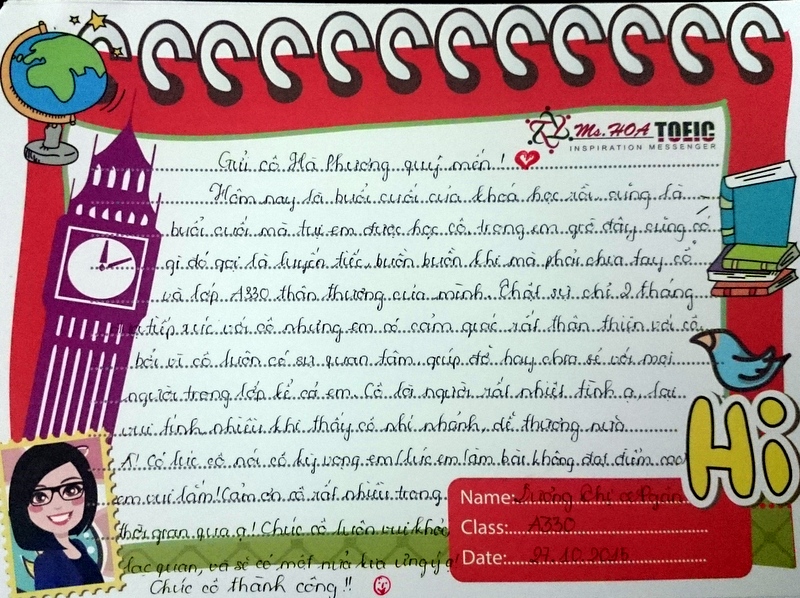 Ms. HOA TOEIC
INSPIRATION MESSENGER
Gửi cô Hà Phương quý mến!
Hôm nay là buổi cuối của khoá học rồi, cũng là
buổi cuối mà tụi em được học cô, trong em giờ đây cũng có
gì đó gọi là luyến tiếc, buồn buồn khi mà phải chia tay cô
và lớp A330 thân thương của mình. Thật sự chỉ 2 tháng
tiếp xúc với cô nhưng em có cảm giác rất thân thiện với cô
bởi vì cô luôn có sự quan tâm, giúp đỡ hay chia sẻ với mọi
người trong lớp kể cả em. Cô là người rất nhiệt tình ạ, lại
vui tính nhiều khi thấy cô nhí nhảnh, dễ thương nữa.
À! Có lúc cô nói cô kỳ vọng em lúc em làm bài không đạt điểm cao
em vui lắm! Cảm ơn cô rất nhiều trong
thời gian qua ạ! Chúc cô luôn vui khoẻ,
lạc quan, và sẽ có một nửa kia ưng ý ạ!
Chúc cô thành công!!
Hi
Name: Dương Thị Ngân
Class: A330
Date: 27.10.2015